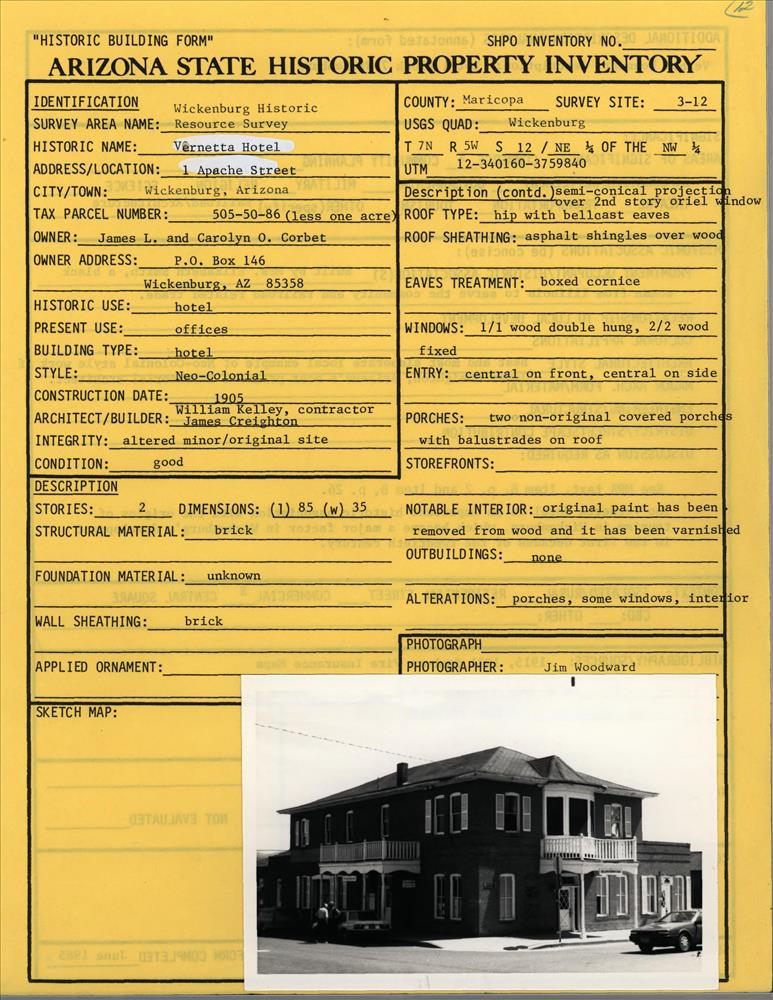 12
"HISTORIC BUILDING FORM"
SHPO INVENTORY NO.
ARIZONA STATE HISTORIC PROPERTY INVENTORY
IDENTIFICATION
SURVEY AREA NAME: Wickenburg Historic
Resource Survey
HISTORIC NAME: Vernetta Hotel
ADDRESS/LOCATION: 1 Apache Street
CITY/TOWN: Wickenburg, Arizona
TAX PARCEL NUMBER: 505-50-86 (less one acre)
OWNER: James L. and Carolyn O. Corbet
OWNER ADDRESS: P.O. Box 146
Wickenburg, AZ 85358
HISTORIC USE: hotel
PRESENT USE: offices
BUILDING TYPE: hotel
STYLE: Neo-Colonial
CONSTRUCTION DATE: 1905
ARCHITECT/BUILDER: William Kelley, contractor
James Creighton
INTEGRITY: altered minor/original site
CONDITION: good
COUNTY: Maricopa SURVEY SITE: 3-12
USGS QUAD: Wickenburg
T 7N R 5W S 12 / NE ¼ OF THE NW ¼
UTM 12-340160-3759840
Description (contd.) semi-conical projection
over 2nd story oriel window
ROOF TYPE: hip with bellcast eaves
ROOF SHEATHING: asphalt shingles over wood
EAVES TREATMENT: boxed cornice
WINDOWS: 1/1 wood double hung, 2/2 wood
fixed
ENTRY: central on front, central on side
PORCHES: two non-original covered porches
with balustrades on roof
STOREFRONTS:
DESCRIPTION
STORIES: 2 DIMENSIONS: (l) 85 (w) 35
STRUCTURAL MATERIAL: brick
FOUNDATION MATERIAL: unknown
WALL SHEATHING: brick
APPLIED ORNAMENT:
NOTABLE INTERIOR: original paint has been
removed from wood and it has been varnished
OUTBUILDINGS: none
ALTERATIONS: porches, some windows, interior
PHOTOGRAPH
PHOTOGRAPHER: Jim Woodward
SKETCH MAP: